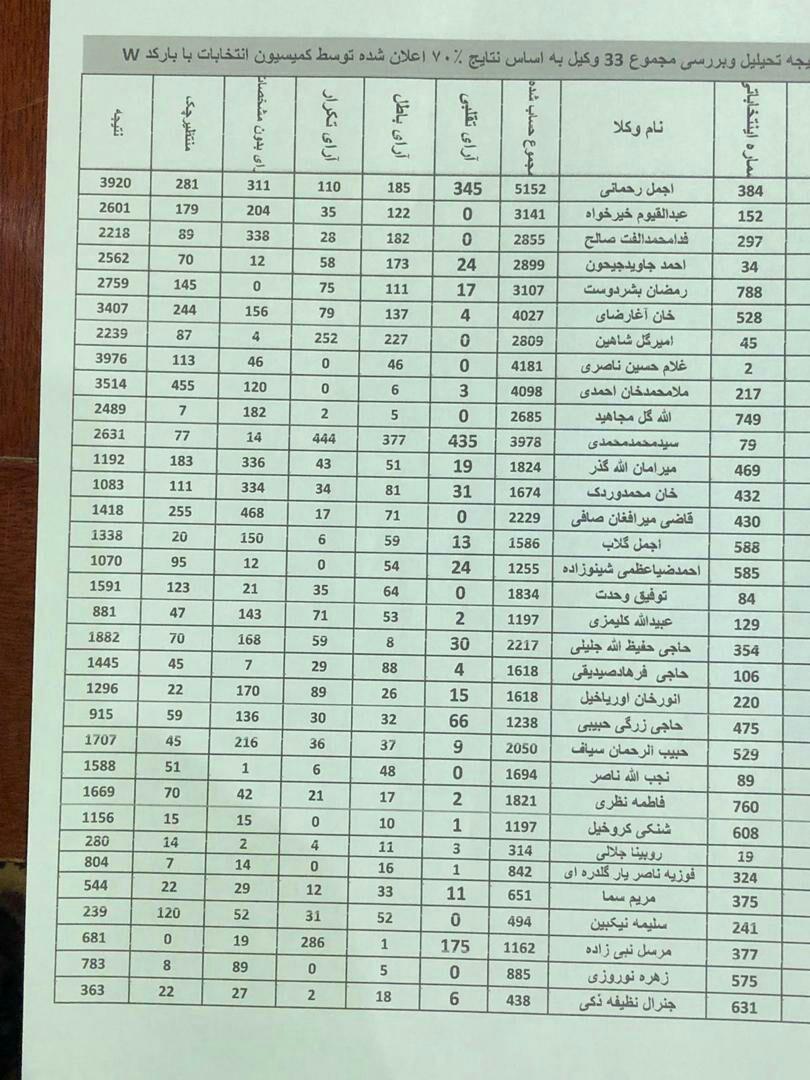 یجه تحیلیل وبررسی مجموع 33 وکیل به اساس نتایج ۷۰٪ اعلان شده توسط کمیسیون انتخابات با بارکد W
ماره اینتخاباتی نام وکلا مجموع حساب شده آرای تقلبی آرای باطل آرای تکرار رای بدون مشخصات منتظیرچک نتیجه
384 اجمل رحمانی 5152 345 185 110 311 281 3920
152 عبدالقیوم خیرخواه 3141 0 122 35 204 179 2601
297 فدامحمدالفت صالح 2855 0 182 28 338 89 2218
34 احمد جاویدجیحون 2899 24 173 58 12 70 2562
788 رمضان بشردوست 3107 17 111 75 0 145 2759
528 خان آغارضای 4027 4 137 79 156 244 3407
45 امیرگل شاهین 2809 0 227 252 4 87 2239
2 غلام حسین ناصری 4181 0 46 0 46 113 3976
217 ملامحمدخان احمدی 4098 3 6 0 120 455 3514
749 الله گل مجاهید 2685 0 5 2 182 7 2489
79 سیدمحمدمحمدی 3978 435 377 444 14 77 2631
469 میرامان الله گذر 1824 19 51 43 336 183 1192
432 خان محمدوردک 1674 31 81 34 334 111 1083
430 قاضی میرافغان صافی 2229 0 71 17 468 255 1418
588 اجمل گلاب 1586 13 59 6 150 20 1338
585 احمدضیاعظمی شینوزاده 1255 24 54 0 12 95 1070
84 توفیق وحدت 1834 0 64 35 21 123 1591
129 عبیدالله کلیمزی 1197 2 53 71 143 47 881
354 حاجی حفیظ الله جلیلی 2217 30 8 59 168 70 1882
106 حاجی فرهادصیدیقی 1618 4 88 29 7 45 1445
220 انورخان اوریاخیل 1618 15 26 89 170 22 1296
475 حاجی زرگی حبیبی 1238 66 32 30 136 59 915
529 حبیب الرحمان سیاف 2050 9 37 36 216 45 1707
89 نجب الله ناصر 1694 0 48 6 1 51 1588
760 فاطمه نظری 1821 2 17 21 42 70 1669
608 شنکی کروخیل 1197 1 10 0 15 15 1156
19 روبینا جلالی 314 3 11 4 2 14 280
324 فوزیه ناصر یار گلدره ای 842 1 16 0 14 7 804
375 مریم سما 651 11 33 12 29 22 544
241 سلیمه نیکبین 494 0 52 31 52 120 239
377 مرسل نبی زاده 1162 175 1 286 19 0 681
575 زهره نوروزی 885 0 5 0 89 8 783
631 جنرال نظیفه ذکی 438 6 18 2 27 22 363